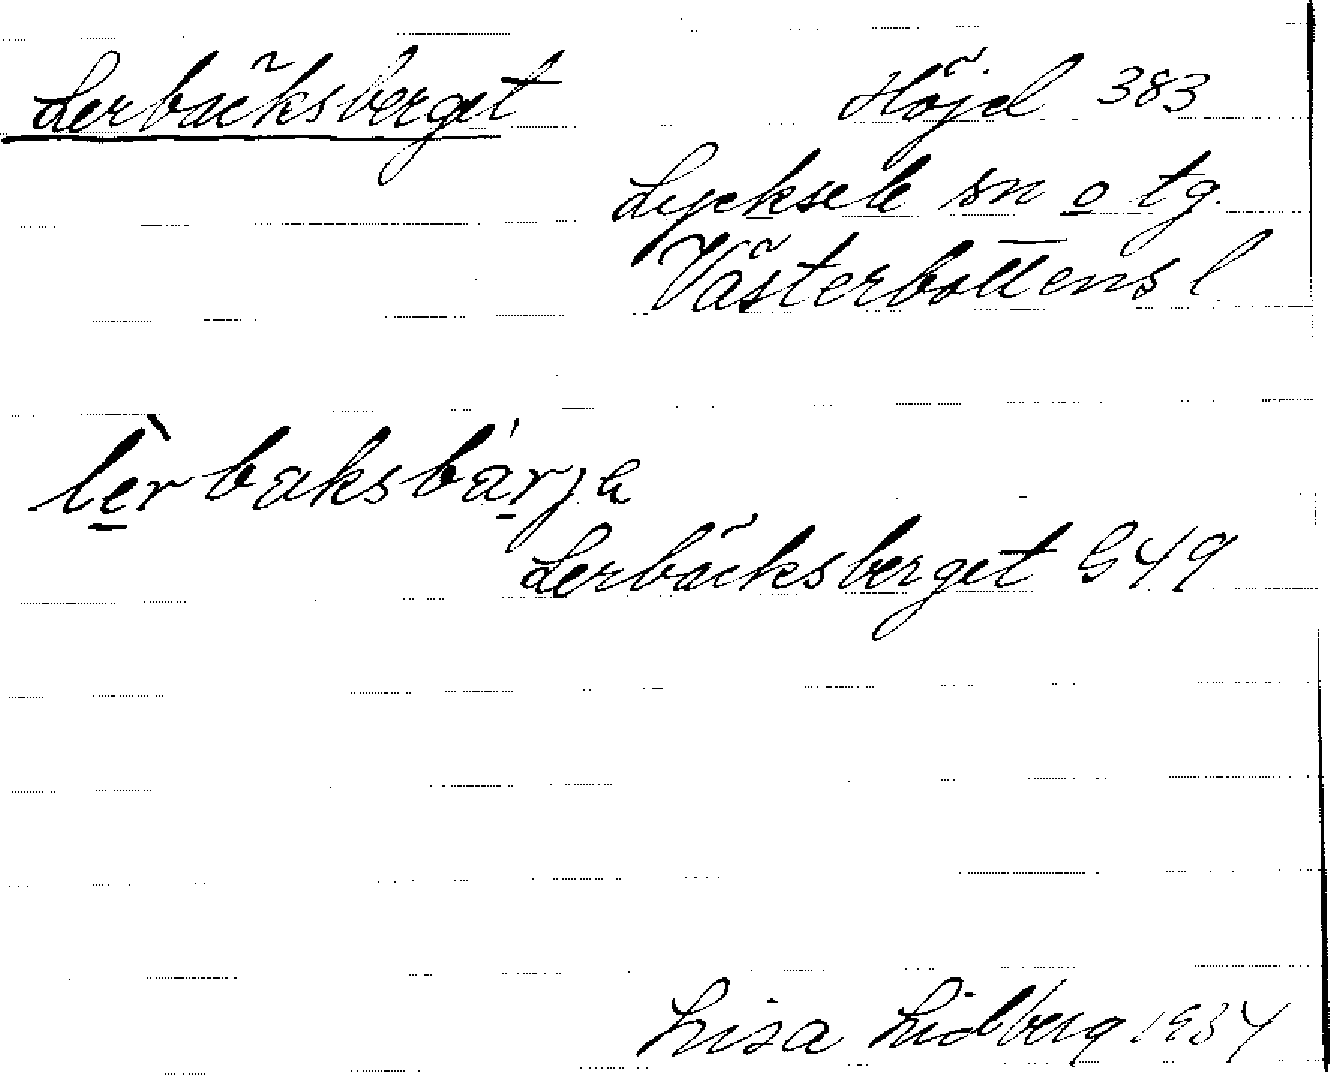 Lerbäcksberget
Höjd 383
Lycksele sn o tg.
Västerbottens l
lèrbaksbárja
Lerbäcksberget G49
Lisa Lidberg 1934